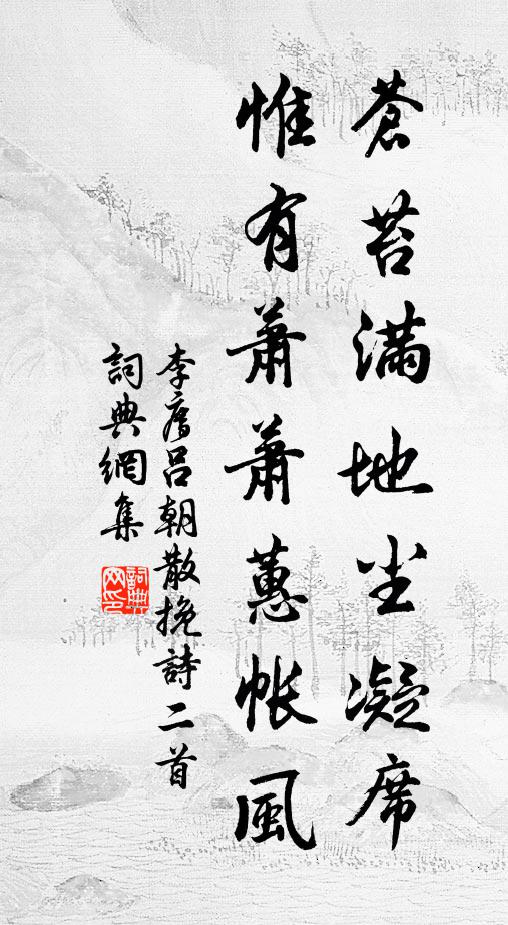 蒼苔滿地尘凝席
惟有蕭蕭蕙帳風
李廌呂朝散挽詩二首
詞典網集